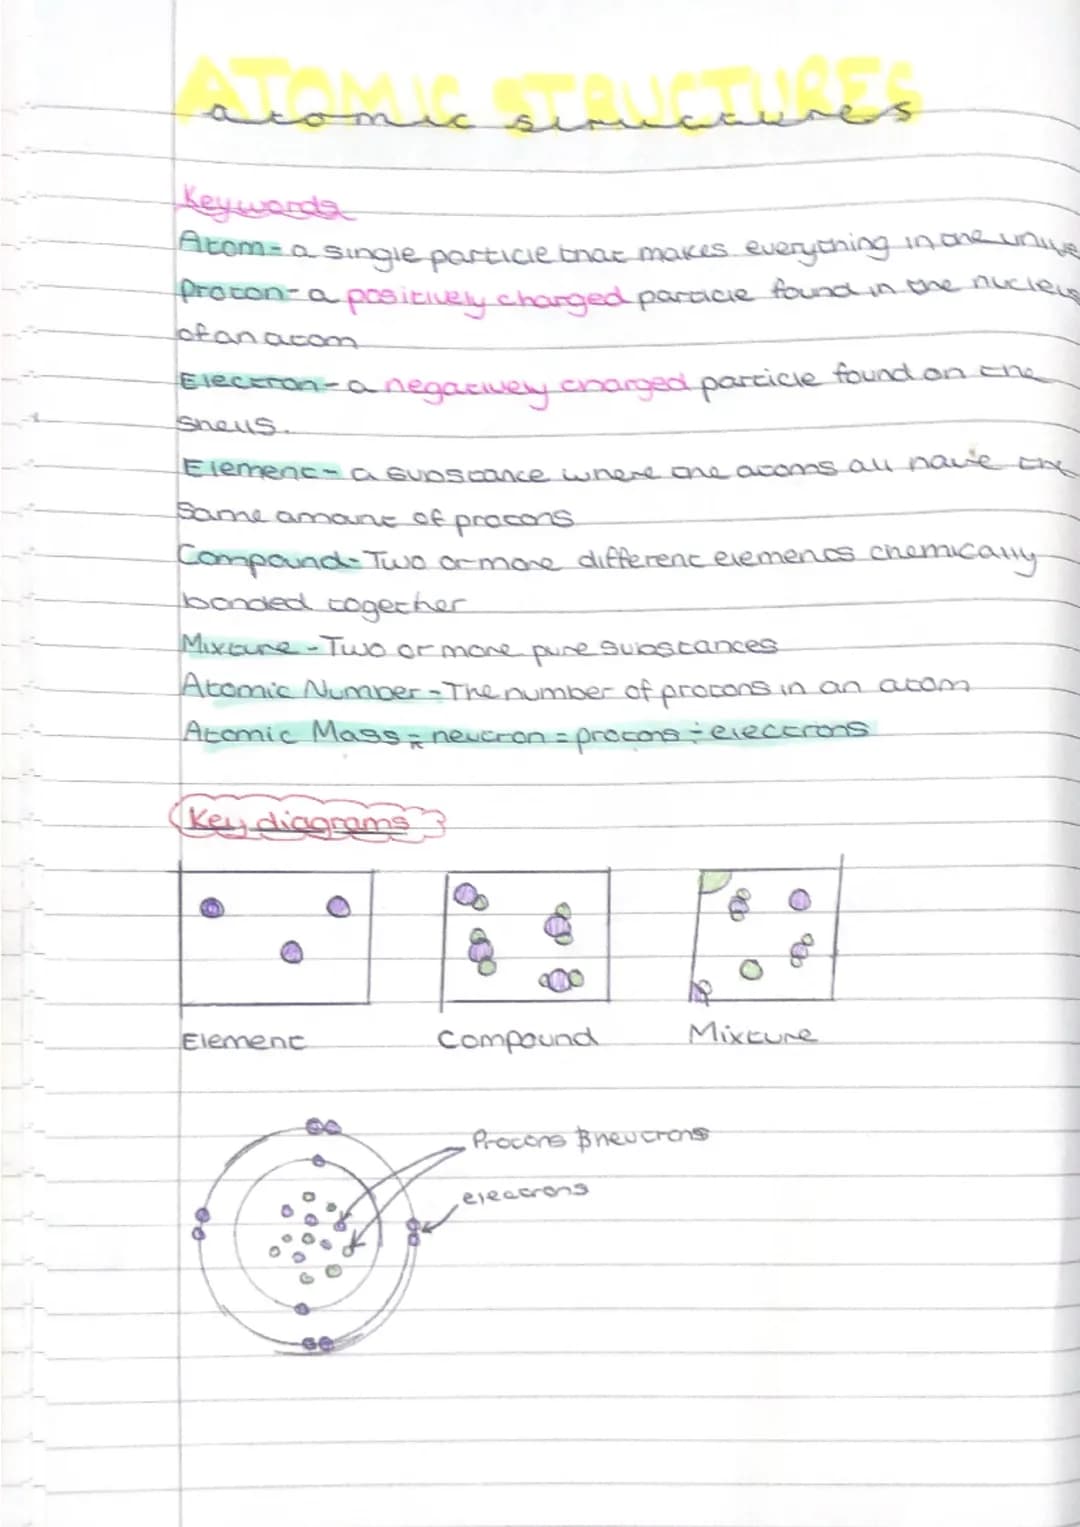 ATOMIC STRUCTURES
atomic structures
Keywords
Atom- a single particle that makes everything in the unive
Proton- a positively charged particle found in the nucleus
of an atom
Electron- a negatively charged particle found on the
shells.
Element- a substance where the atoms all have the
Same amant of protons
Compound- Two or more different elements chemically
bonded together
Mixture - Two or more pure substances
Atomic Number - The number of protons in an atom
Atomic Mass = neutron = protons ÷ electrons
Key diagrams
Element Compound Mixture
Protons & neutrons
electrons